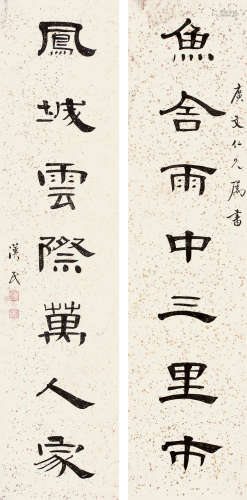 魚舍雨中三里市
文仁久屬書
鳳城雲際萬人家
漢民